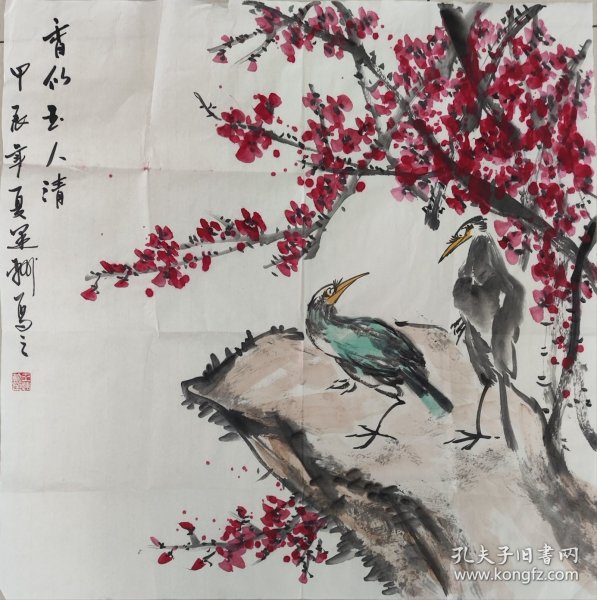 香似玉人清
甲辰年夏
写之
孔夫子旧书网
www.kongfz.com